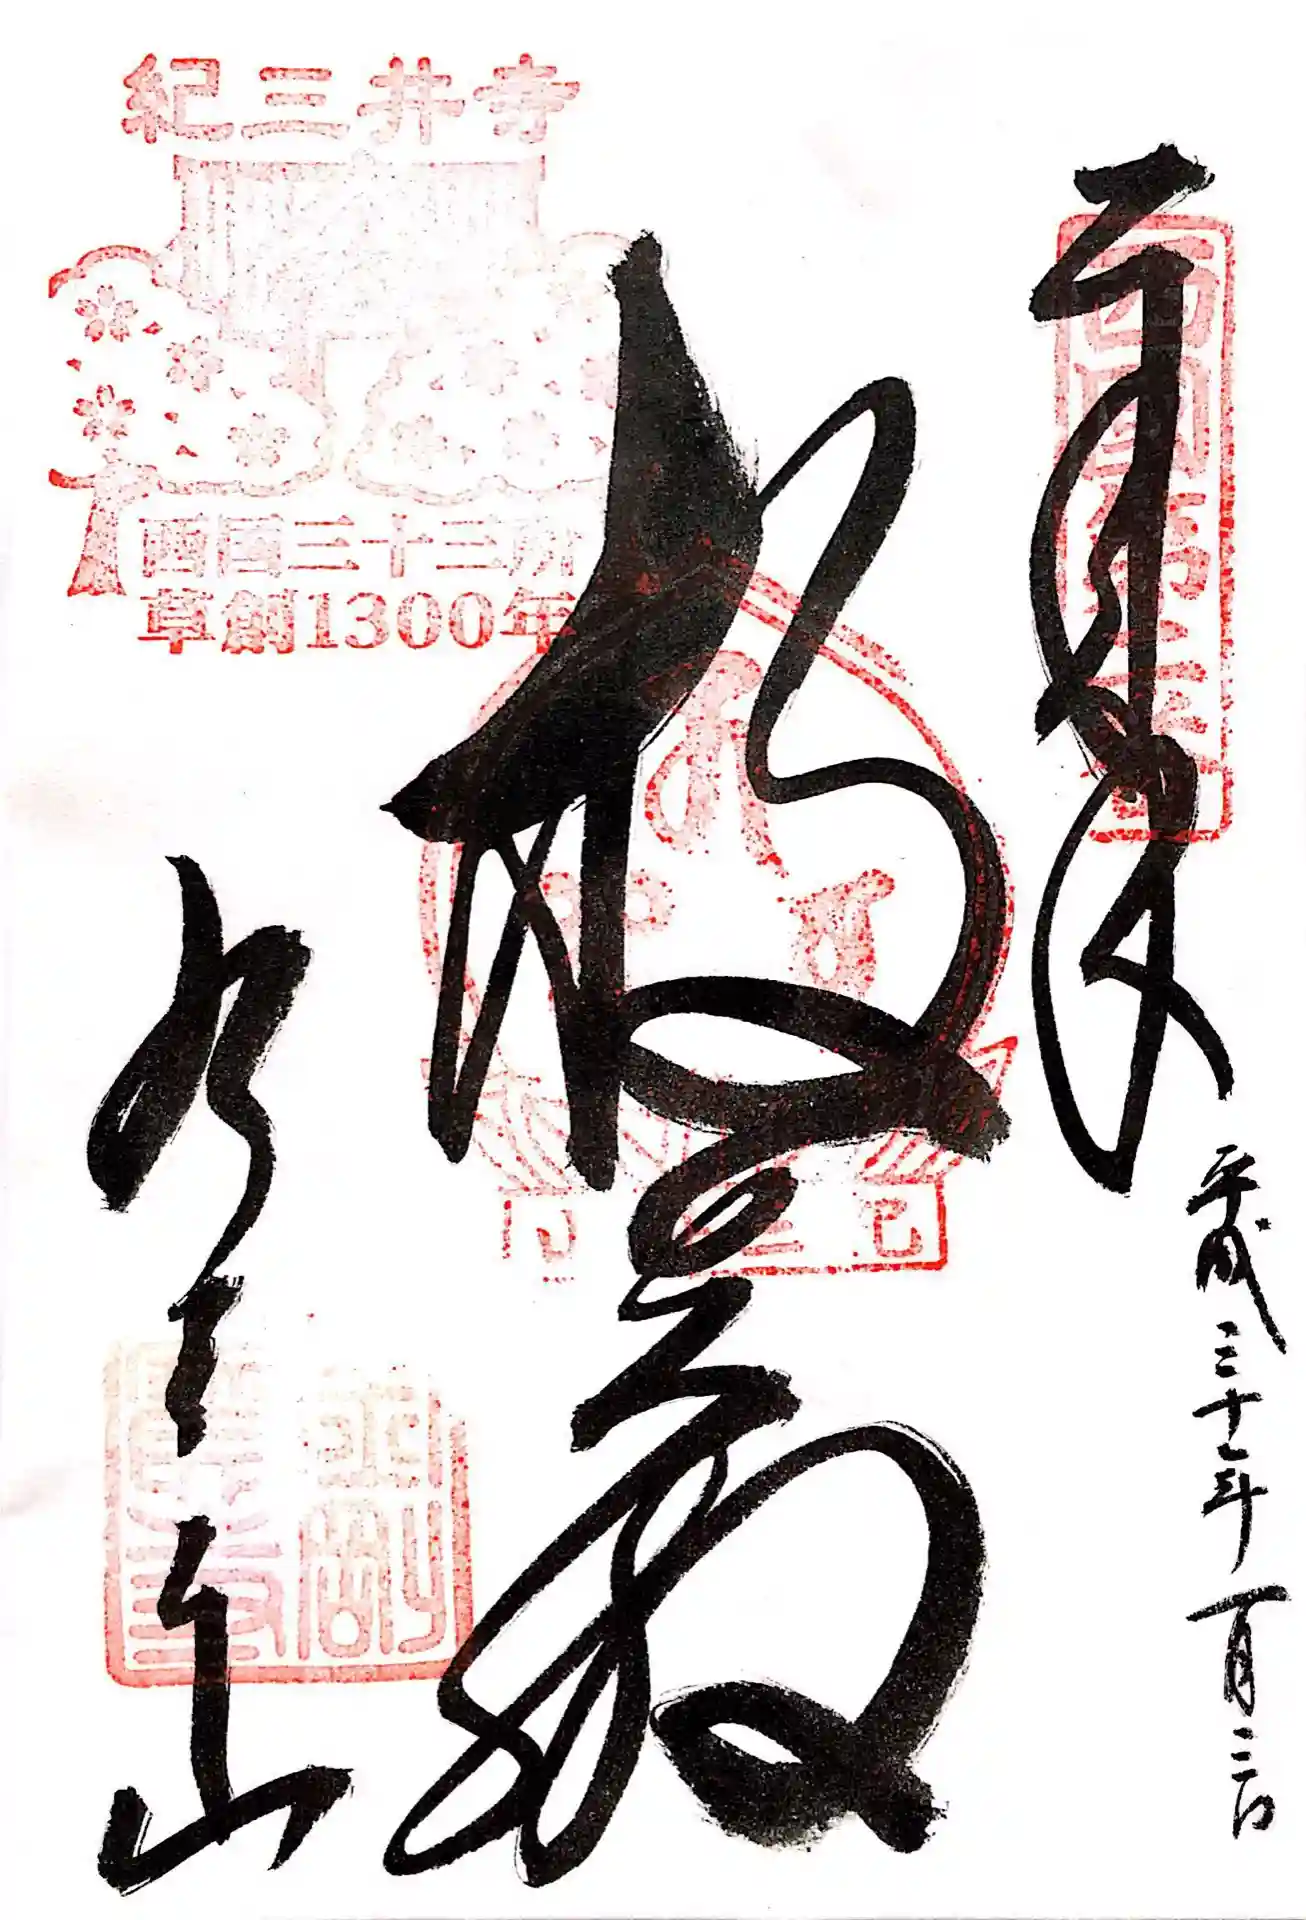 奉拝
西國第二番
平成三十一年一月二日
救世殿
紀三井寺
西国三十三所
草創1300年
紀三井山
金剛
寶寺